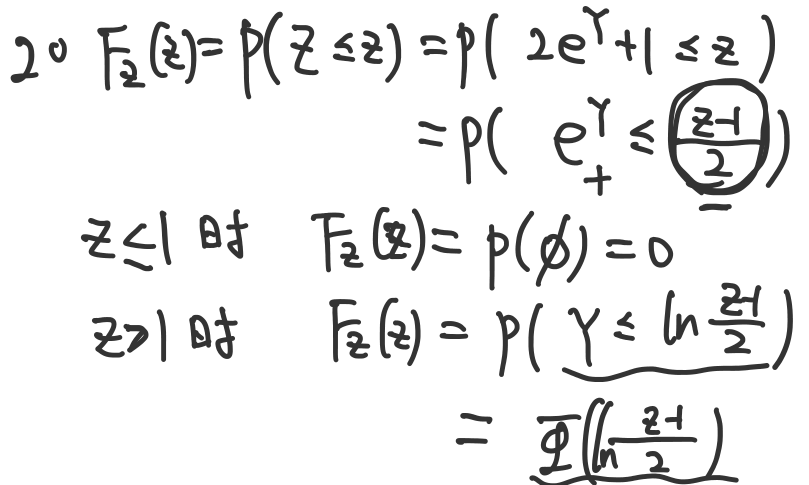 2° F_Z(z) = P(Z ≤ z) = P( 2e^Y + 1 ≤ z )
= P( e^Y ≤ (z-1)/2 )
+
z ≤ 1 时 F_Z(z) = P(∅) = 0
z > 1 时 F_Z(z) = P( Y ≤ ln (z-1)/2 )
= Φ( ln (z-1)/2 )